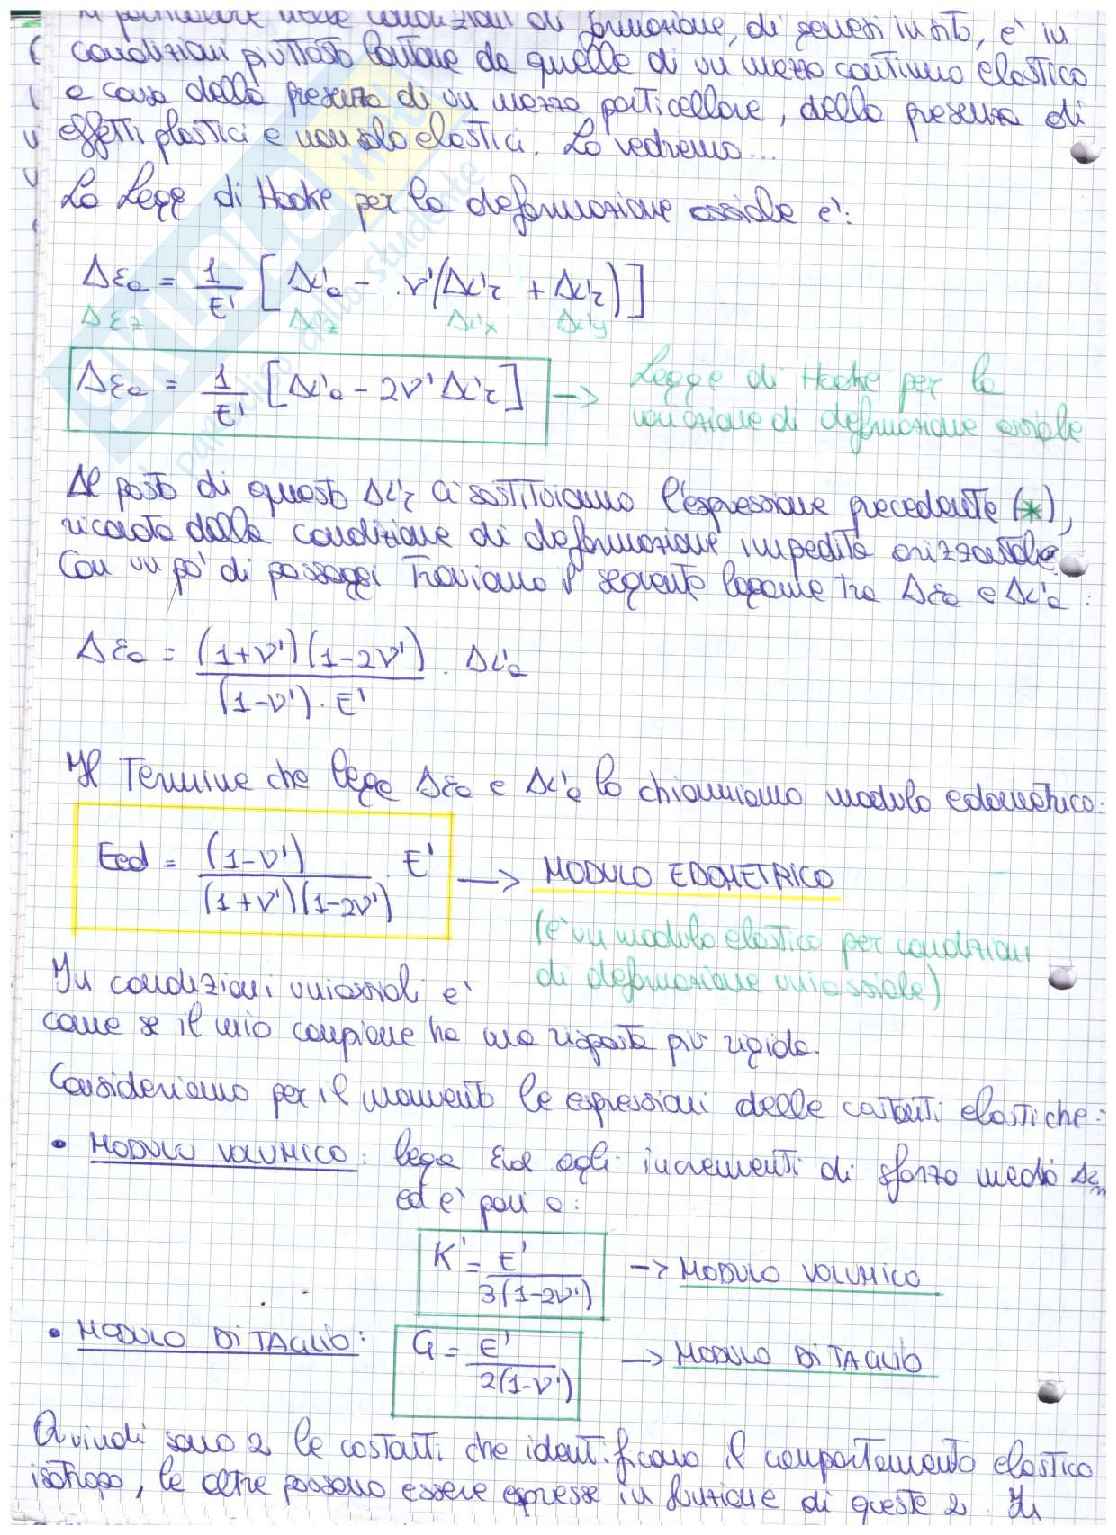 In particolare nelle condizioni di formazione, di genesi in sito, è in
condizioni piuttosto lontane da quelle di un mezzo continuo elastico
a causa della presenza di un mezzo particellare, della presenza di
effetti plastici e non solo elastici. Lo vedremo...
La Legge di Hooke per la deformazione assiale e':
Δεa = 1/E' [Δσ'a - ν'(Δσ'r + Δσ'r)]
Δεz Δσ'z Δσ'x Δσ'y
Δεa = 1/E' [Δσ'a - 2ν'Δσ'r] → Legge di Hooke per la
variazione di deformazione assiale
Al posto di questo Δσ'r ci sostituiamo l'espressione precedente (*),
ricavata dalla condizione di deformazione impedita orizzontale.
Con un po' di passaggi troviamo il seguente legame tra Δεa e Δσ'a:
Δεa = (1+ν')(1-2ν')/(1-ν')·E' · Δσ'a
Il Termine che lega Δεa e Δσ'a lo chiamiamo modulo edometrico:
Eed = (1-ν')/(1+ν')(1-2ν') · E' → MODULO EDOMETRICO
(e' un modulo elastico per condizioni
di deformazione uniassiale)
In condizioni uniassiali e'
come se il mio campione ha una risposta più rigida.
Consideriamo per il momento le espressioni delle costanti elastiche:
• MODULO VOLUMICO: lega εvol agli incrementi di sforzo medio Δσ'm
ed e' pari a:
K' = E'/3(1-2ν') → MODULO VOLUMICO
• MODULO DI TAGLIO: G = E'/2(1-ν') → MODULO DI TAGLIO
Quindi sono 2 le costanti che identificano il comportamento elastico
isotropo, le altre possono essere espresse in funzione di queste 2. In